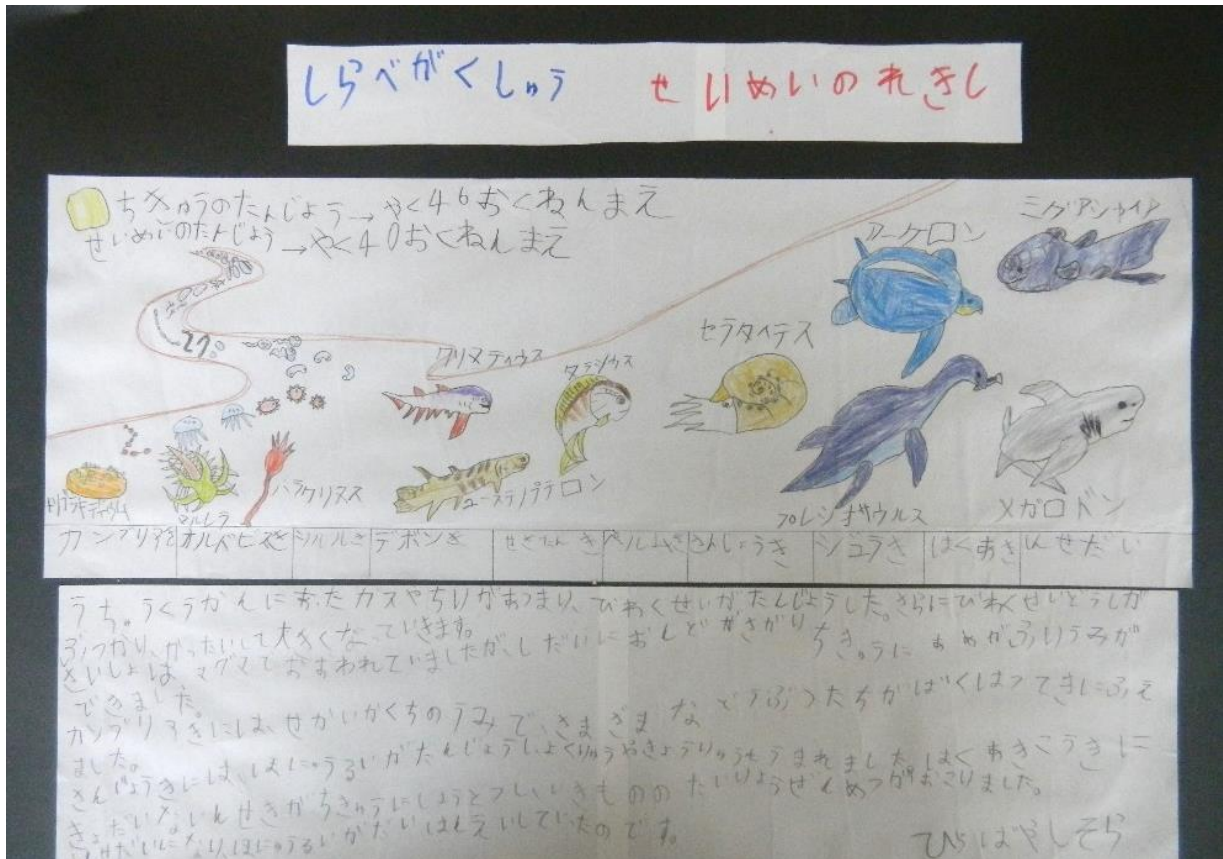 しらべがくしゅう せいめいのれきし
ちきゅうのたんじょう→やく46おくねんまえ
せいめいのたんじょう→やく40おくねんまえ
ミグアシャイア
アーケロン
セラタイテス
クリマティウス
タラシウス
パラクリヌス
ユーステノプテロン
マルレラ
プレシオサウルス
メガロドン
カンブリアき オルドビスき シルルき デボンき せきたんき ペルムき さんじょうき ジュラき はくあき しんせだい
うちゅうくうかんにあったガスやちりがあつまり、びわくせいがたんじょうした。さらにびわくせいどうしが
ぶつかり、がったいして大きくなっていきます。
さいしょは、マグマでおおわれていましたが、しだいにおんどがさがりちきゅうにあめがふりうみが
できました。
カンブリアきには、せかいかくちのうみで、さまざまなどうぶつたちがばくはつてきにふえ
ました。
さんじょうきには、ほにゅうるいがたんじょうしよくりゅうやきょうりゅうもうまれました。はくあきこうきに
きょだいないんせきがちきゅうにしょうとつし、いきもののたいりょうぜつめつがおこりました。
ほにゅうるいがだいはんえいしていたのです。
ひらばやしそら